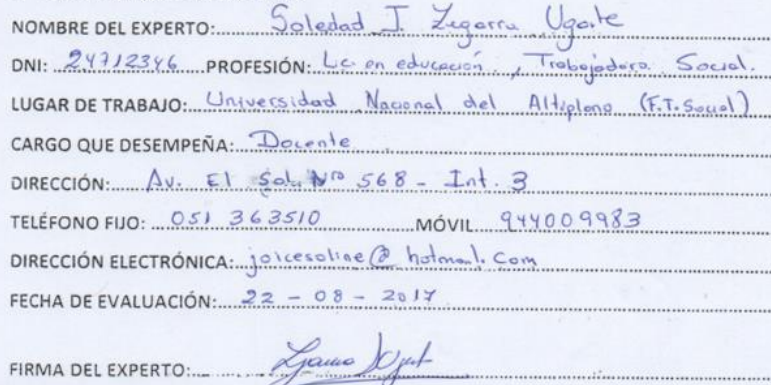 NOMBRE DEL EXPERTO: Soledad J. Zegarra Ugarte
DNI: 24712346 PROFESIÓN: Lic. en educación, Trabajadora Social.
LUGAR DE TRABAJO: Universidad Nacional del Altiplano (F.T.Social)
CARGO QUE DESEMPEÑA: Docente
DIRECCIÓN: Av. El Sol Nro 568 - Int. 3
TELÉFONO FIJO: 051 363510 MÓVIL 944009983
DIRECCIÓN ELECTRÓNICA: joicesoline@hotmail.com
FECHA DE EVALUACIÓN: 22 - 08 - 2017
FIRMA DEL EXPERTO: